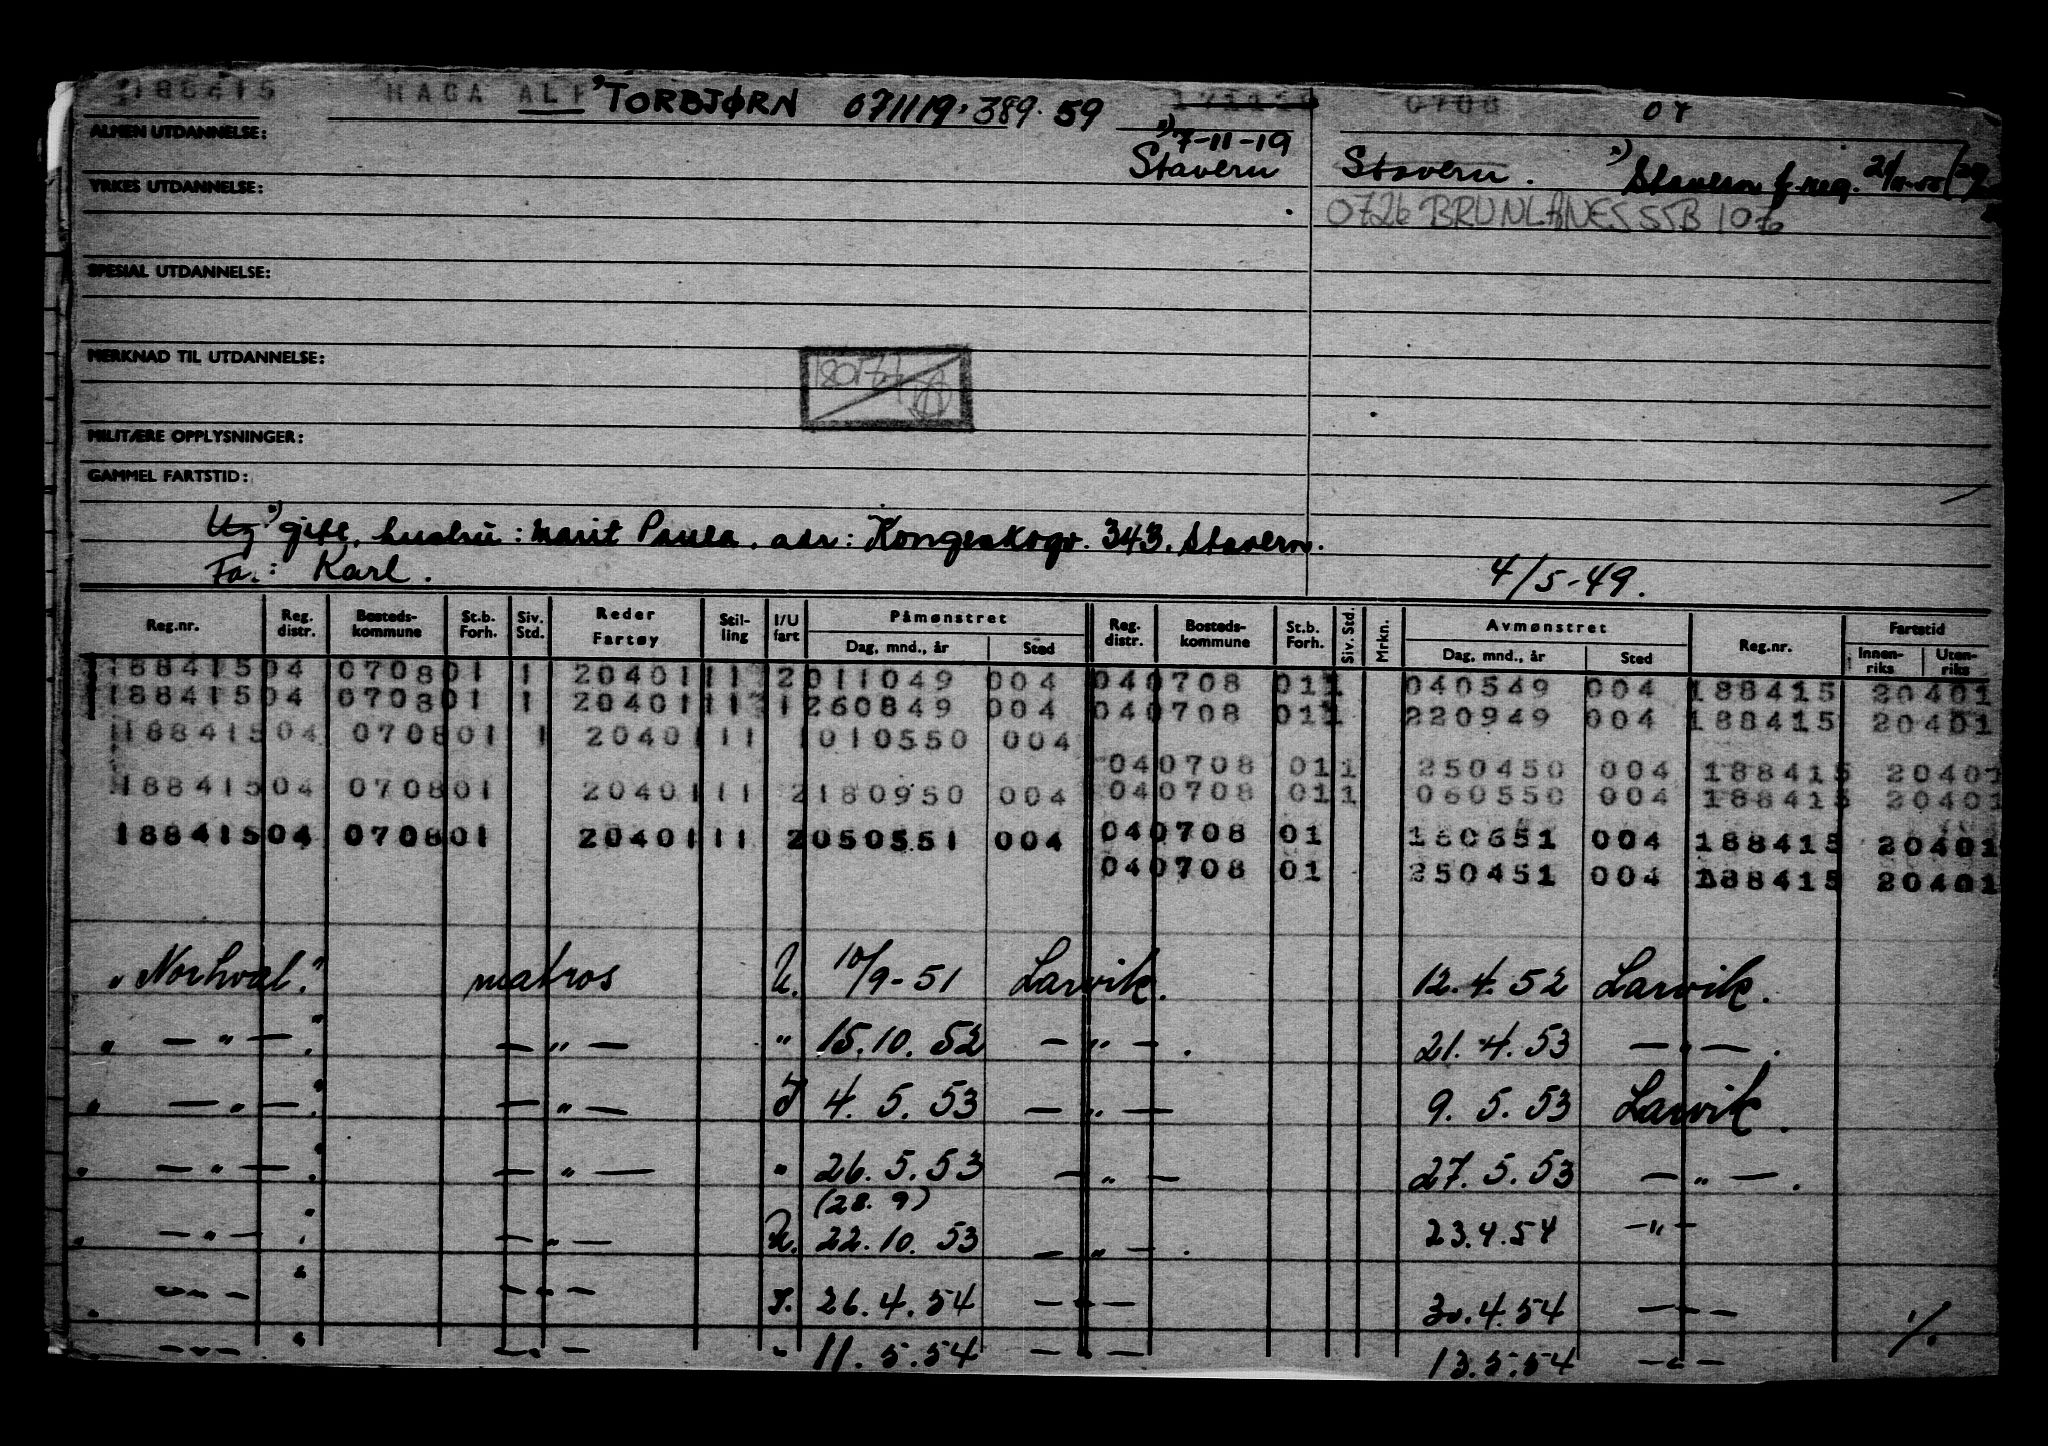 188415 HAGA ALF ²) TORBJØRN 071119.389.59 0708 04
ALMEN UTDANNELSE: ²) 7-11-19
Stavern Stavern. ²) Stavern f. reg.
YRKES UTDANNELSE:
0726 BRUNLANES SSB 1076
SPESIAL UTDANNELSE:
MERKNAD TIL UTDANNELSE:
MILITÆRE OPPLYSNINGER:
GAMMEL FARTSTID:
Ug ²) gift, hustru: Marit Paula, adr: Kongeskogv. 343, Stavern.
Fa.: Karl. 4/5-49.
Reg.nr. Reg. distr. Bosteds-kommune St.b. Forh. Siv. Std. Reder Fartøy Stil-ling I/U fart Påmønstret Dag, mnd., år Sted Reg. distr. Bosteds-kommune St.b. Forh. Siv. Std. Mrkn. Avmønstret Dag, mnd., år Sted Reg.nr. Fartstid Innen-riks Uten-riks
188415 04 0708 01 1 20401 11 2 011049 004 04 0708 01 1 040549 004 188415 20401
188415 04 0708 01 1 20401 11 1 260849 004 04 0708 01 1 220949 004 188415 20401
188415 04 0708 01 1 20401 11 1 010550 004
04 0708 01 1 250450 004 188415 20401
188415 04 0708 01 20401 11 2 180950 004 04 0708 01 1 060550 004 188415 20401
188415 04 0708 01 20401 11 2 050551 004 04 0708 01 180651 004 188415 20401
04 0708 01 250451 004 188415 20401
"Norhval." matros U. 10/9-51 Larvik. 12.4.52 Larvik.
" — " — ." — " — " 15.10.52 — " — . 21.4.53 — " — .
" — " — ." — " — I 4.5.53 — " — 9.5.53 Larvik.
" — " — ." — " — " 26.5.53 — " — 27.5.53 — " — .
(28.9)
" — " — ." — " — U. 22.10.53 — " — . 23.4.54 — " —
" — " — " — " — I. 26.4.54 — " — 30.4.54 — " — ./.
— " — " — " — " 11.5.54 — " — 13.5.54 — " —